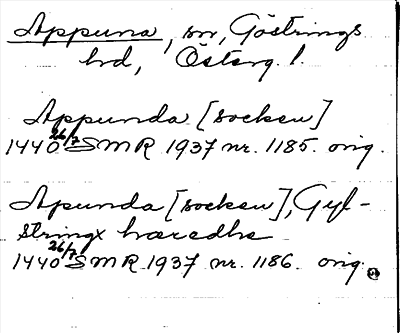 Appuna, sn, Göstrings
hd, Österg. l.
Appunda [socken]
1440 26/7 SMR 1937 nr. 1185. orig.
Apunda [socken], Gyl-
stringx hæredhe
1440 26/7 SMR 1937 nr. 1186. orig.